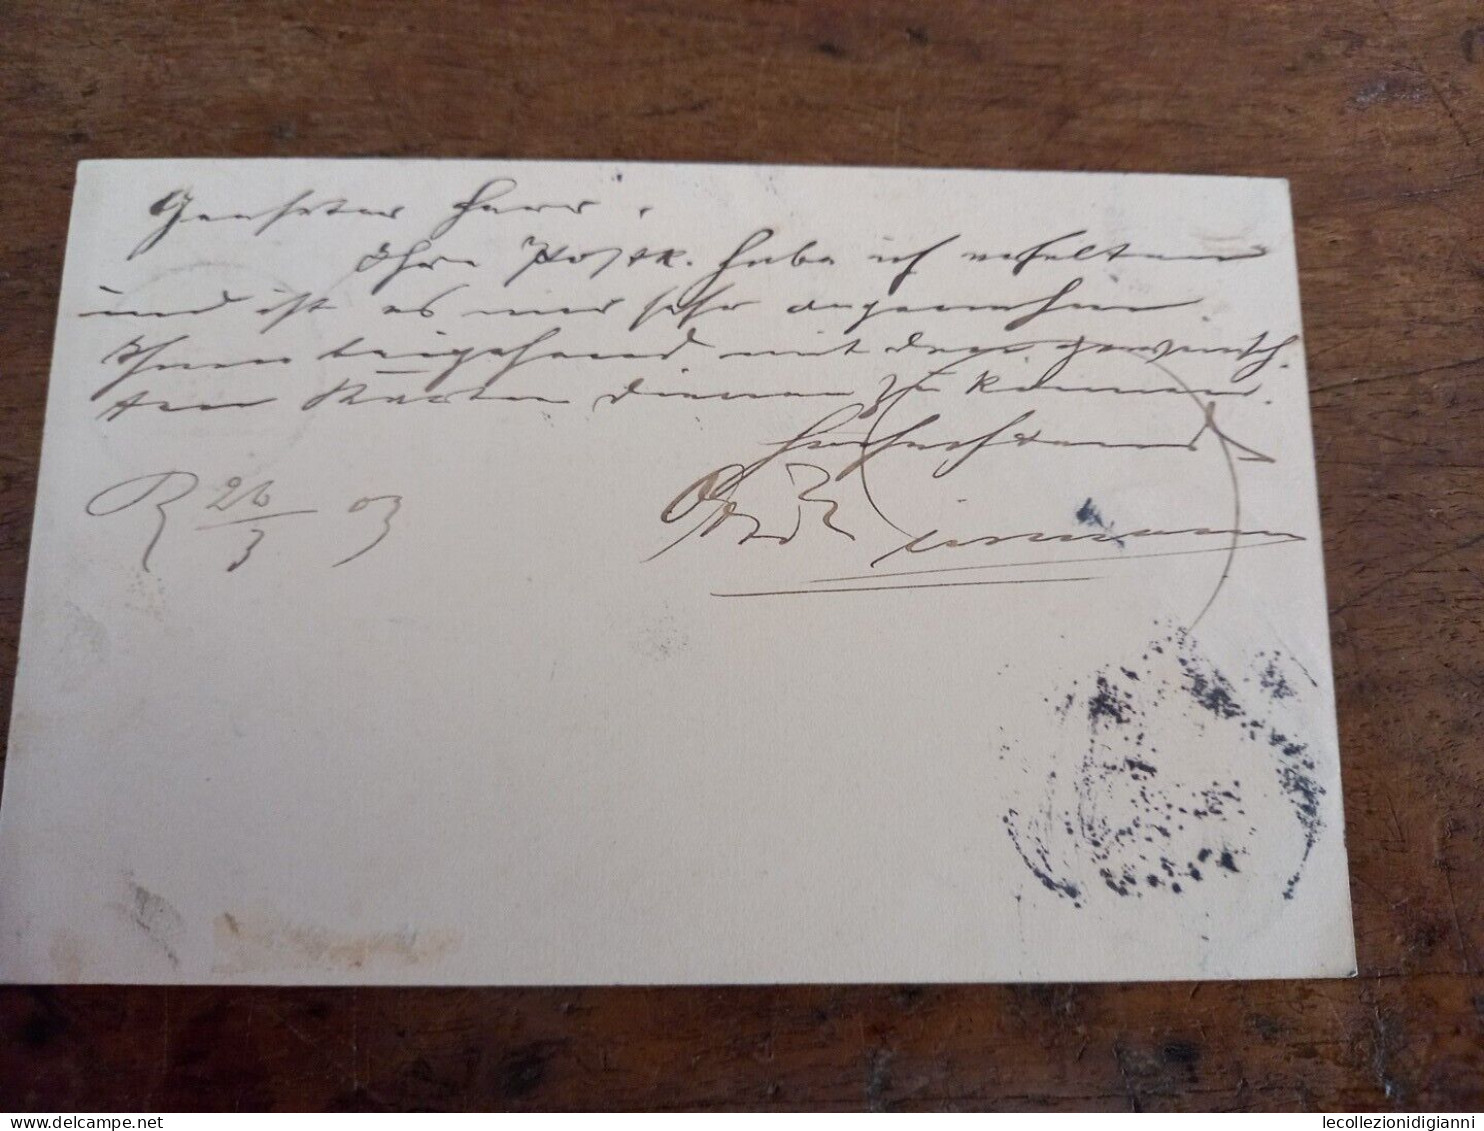 Geehrter Herr.
Ihre Postk. habe ich erhalten
und ist es mir sehr angenehm
Ihnen beigehend mit den gewünsch-
ten Karten dienen zu können.
Hochachtend
R 26/3 03
lecollezionidigianni